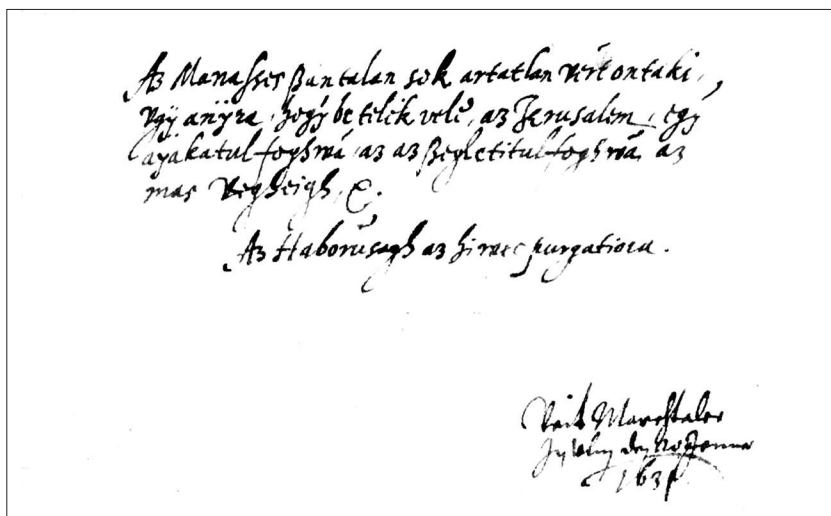 Az Manasses ßantalan sok artatlan vért ontaki,
vgÿ anÿra, hogÿ be telik velė, az Jerusalem, egÿ
aÿakatul foghwá, az az ßegletitul foghwá, az
mas vegheigh, &.
Az Haborúsagh az hiwec purgatiora.
Veit Marchtaler
1631